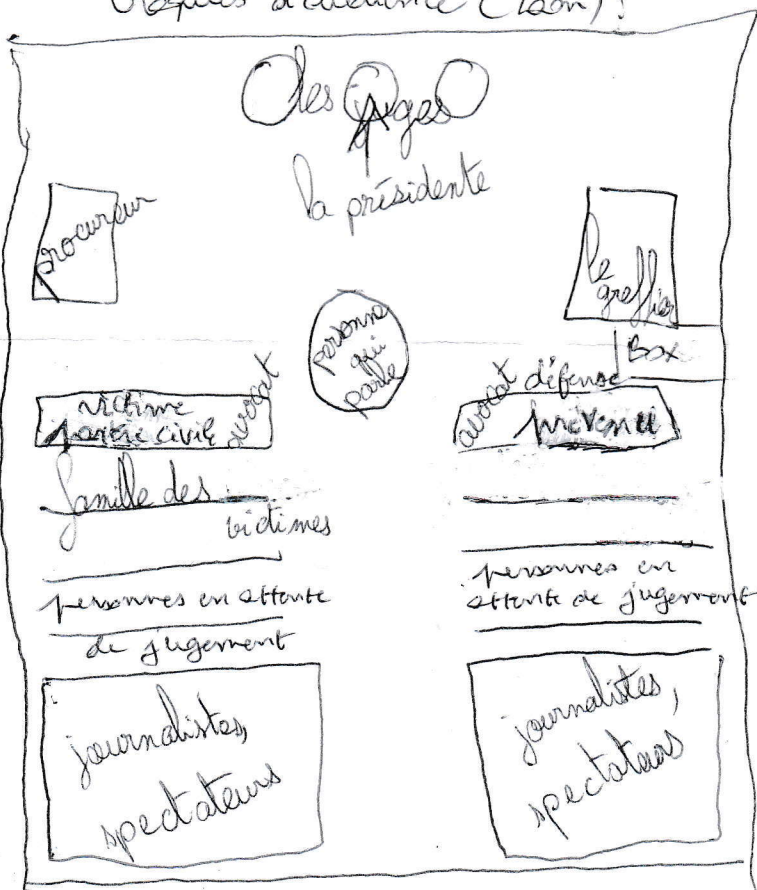 d'audience (Laon) :
les juges
la présidente
procureur
le
greffier
personne
qui
parle
Box
victime
partie civile
avocat
avocat
défense
prévenu
famille des
victimes
personnes en attente
de jugement
personnes en
attente de jugement
journalistes,
spectateurs
journalistes,
spectateurs